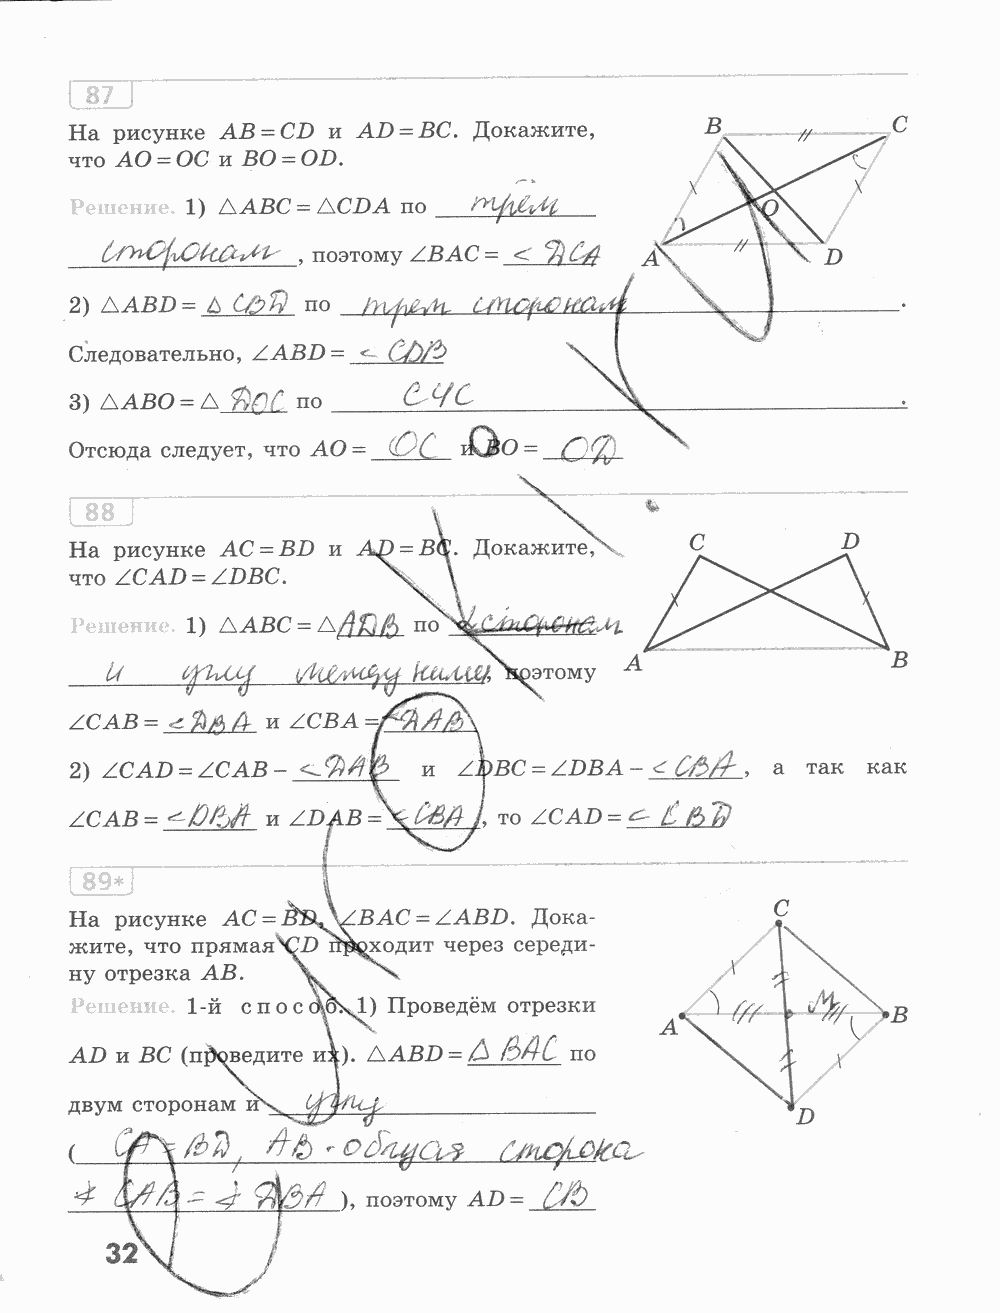 87
На рисунке AB = CD и AD = BC. Докажите,
что AO = OC и BO = OD.
Решение. 1) △ABC = △CDA по трём
сторонам, поэтому ∠BAC = < DCA
2) △ABD = △ CBD по трем сторонам.
Следовательно, ∠ABD = < CDB
3) △ABO = △ DOC по СУС.
Отсюда следует, что AO = OC и BO = OD
B
C
O
A
D
88
На рисунке AC = BD и AD = BC. Докажите,
что ∠CAD = ∠DBC.
Решение. 1) △ABC = △ADB по 2 сторонам
и углу между ними, поэтому
∠CAB = < DBA и ∠CBA = < DAB
2) ∠CAD = ∠CAB − < DAB и ∠DBC = ∠DBA − < CBA, а так как
∠CAB = < DBA и ∠DAB = < CBA, то ∠CAD = < CBD
C
D
A
B
89*
На рисунке AC = BD, ∠BAC = ∠ABD. Дока-
жите, что прямая CD проходит через середи-
ну отрезка AB.
Решение. 1-й способ. 1) Проведём отрезки
AD и BC (проведите их). △ABD = △ BAC по
двум сторонам и углу
(CA = BD, AB - общая сторона
∠ CAB = ∠ DBA), поэтому AD = CB
C
M
A
B
D
32